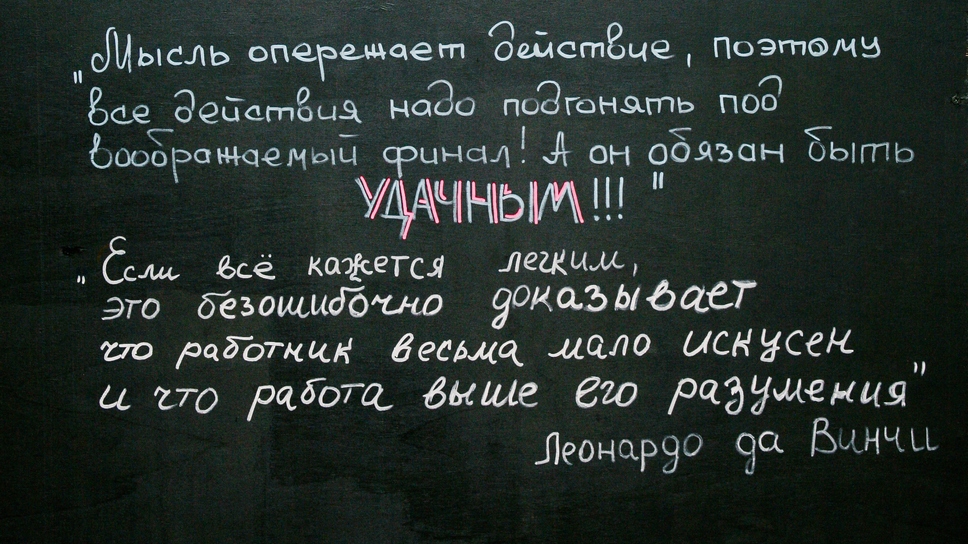 „Мысль опережает действие, поэтому
все действия надо подгонять под
воображаемый финал! А он обязан быть
УДАЧНЫМ!!!"
„Если всё кажется легким,
это безошибочно доказывает
что работник весьма мало искусен
и что работа выше его разумения"
Леонардо да Винчи